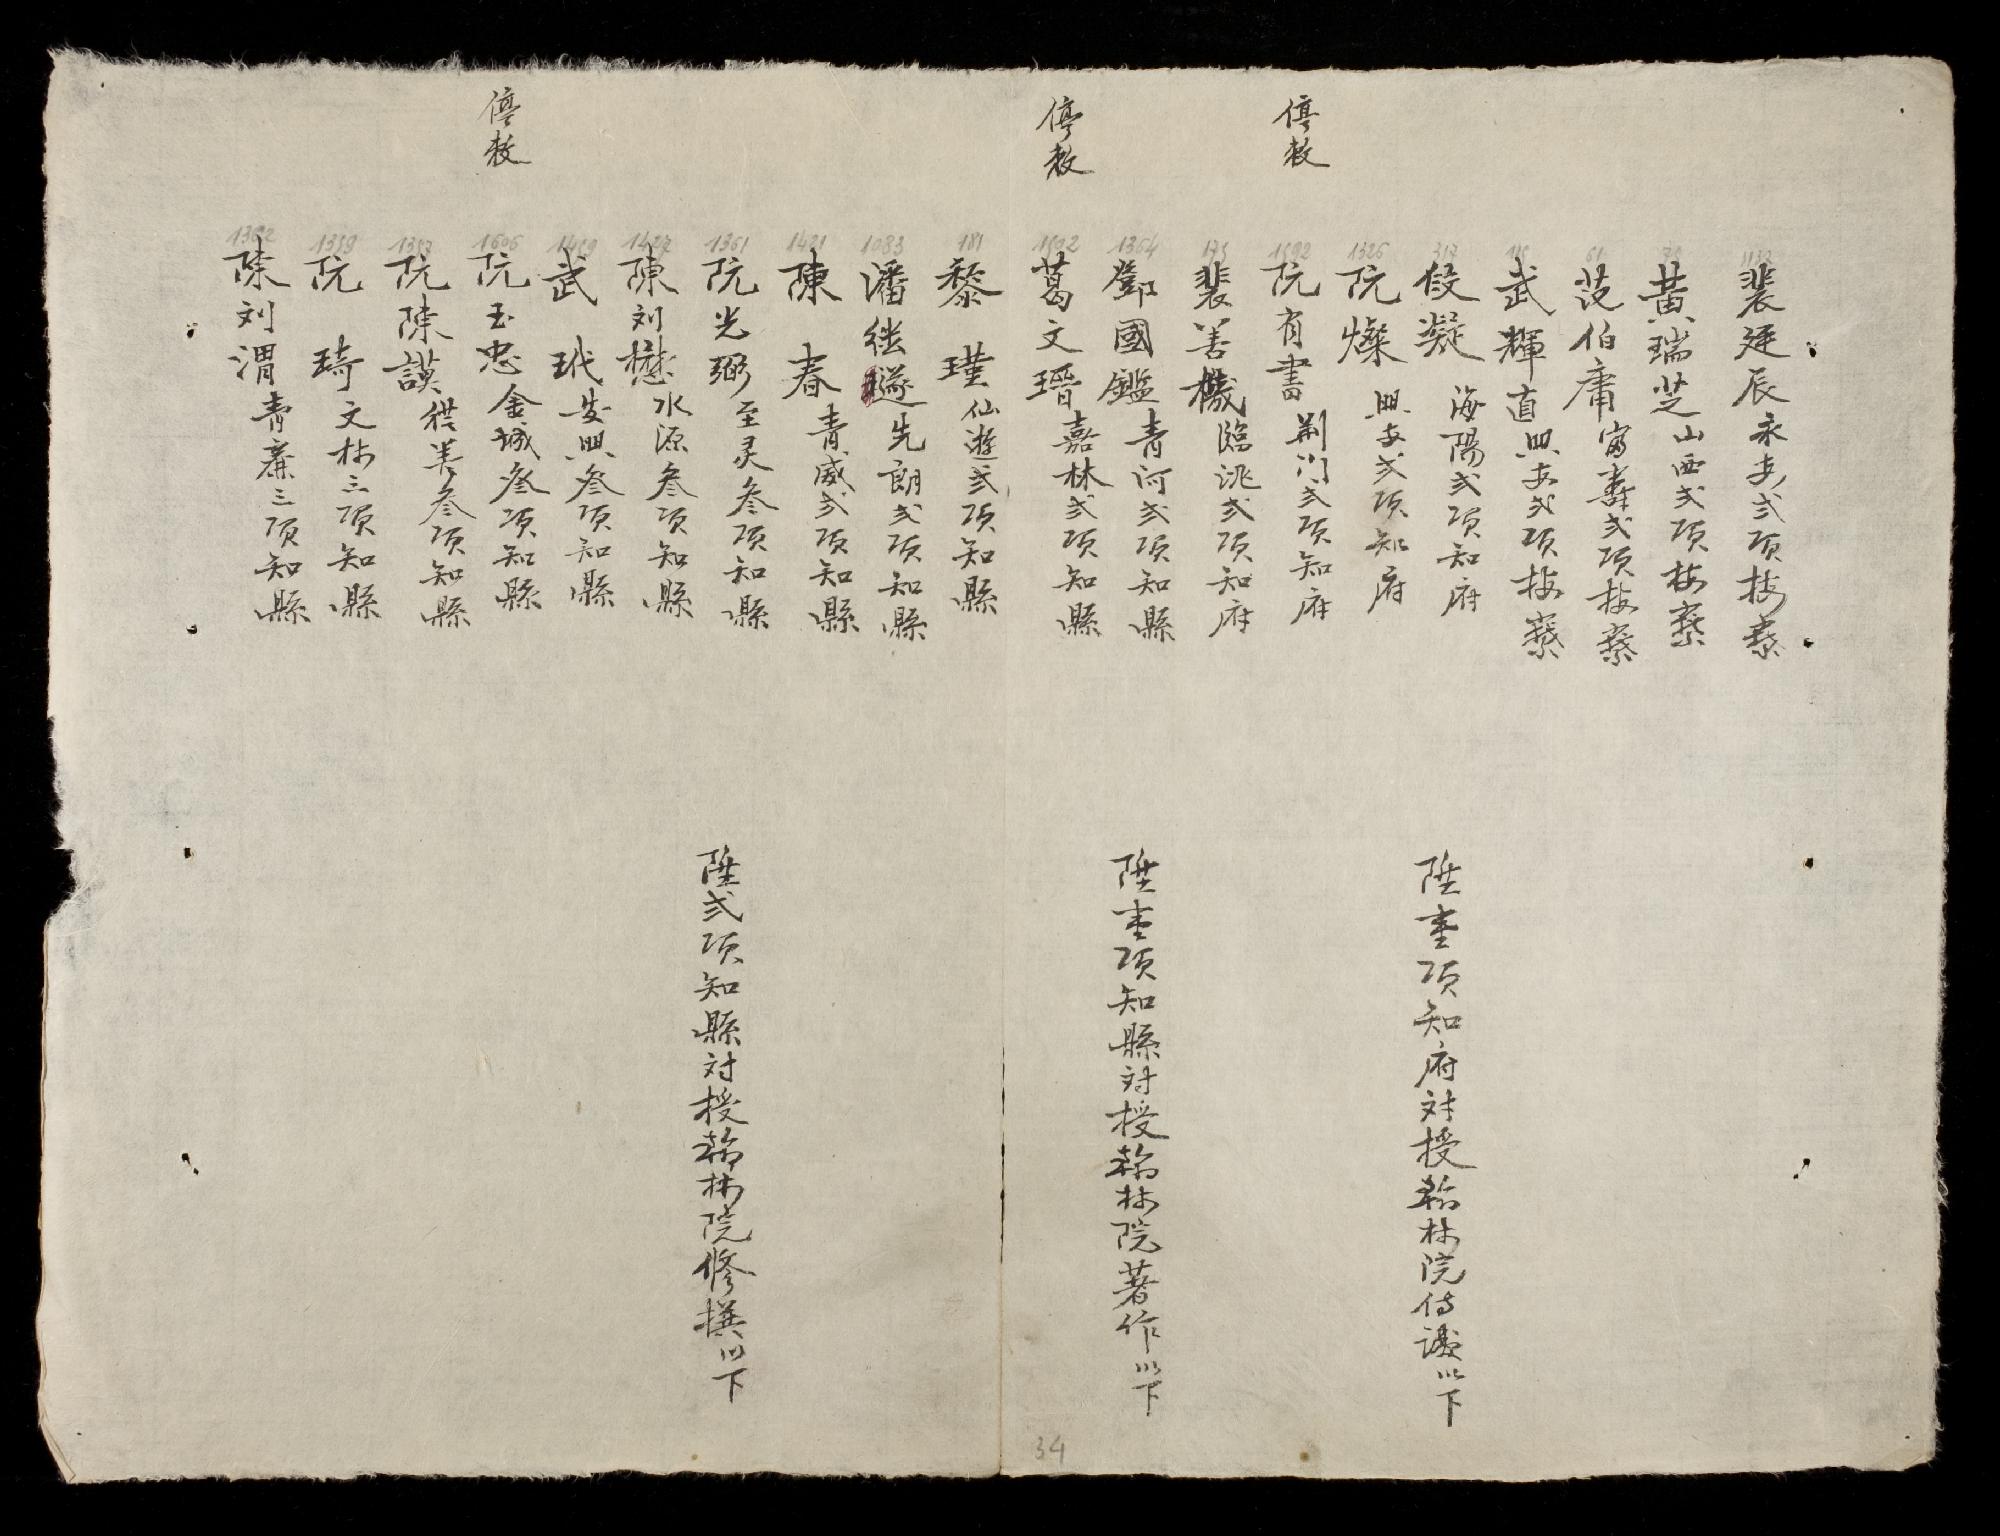 1132
裴廷辰永安弍項按察
黃瑞芝山西弍項按察
61
范伯庸富壽弍項按察
武輝直興安弍項按察
317
段凝海陽弍項知府
陞壹項知府対授翰林院侍讀以下
1326
阮燦興安弍項知府
停敕
1592
阮有書荆门弍項知府
173
裴善機臨洮弍項知府
1364
鄧國鑑青河弍項知縣
陞壹項知縣対授翰林院著作以下
停敕
1502
葛文瑨嘉林弍項知縣
181
黎瑾仙遊弍項知縣
1083
潘継邃先朗弍項知縣
1421
陳春青威弍項知縣
1361
阮光弼至灵叄項知縣
陞弍項知縣対授翰林院修撰以下
1427
陳刘懋水源叄項知縣
1419
武玳安興叄項知縣
停敕
1606
阮玉忠金城叄項知縣
1337
阮陳謨 善叄項知縣
1339
阮琦文林三項知縣
1362
陳刘渭青廉三項知縣
34